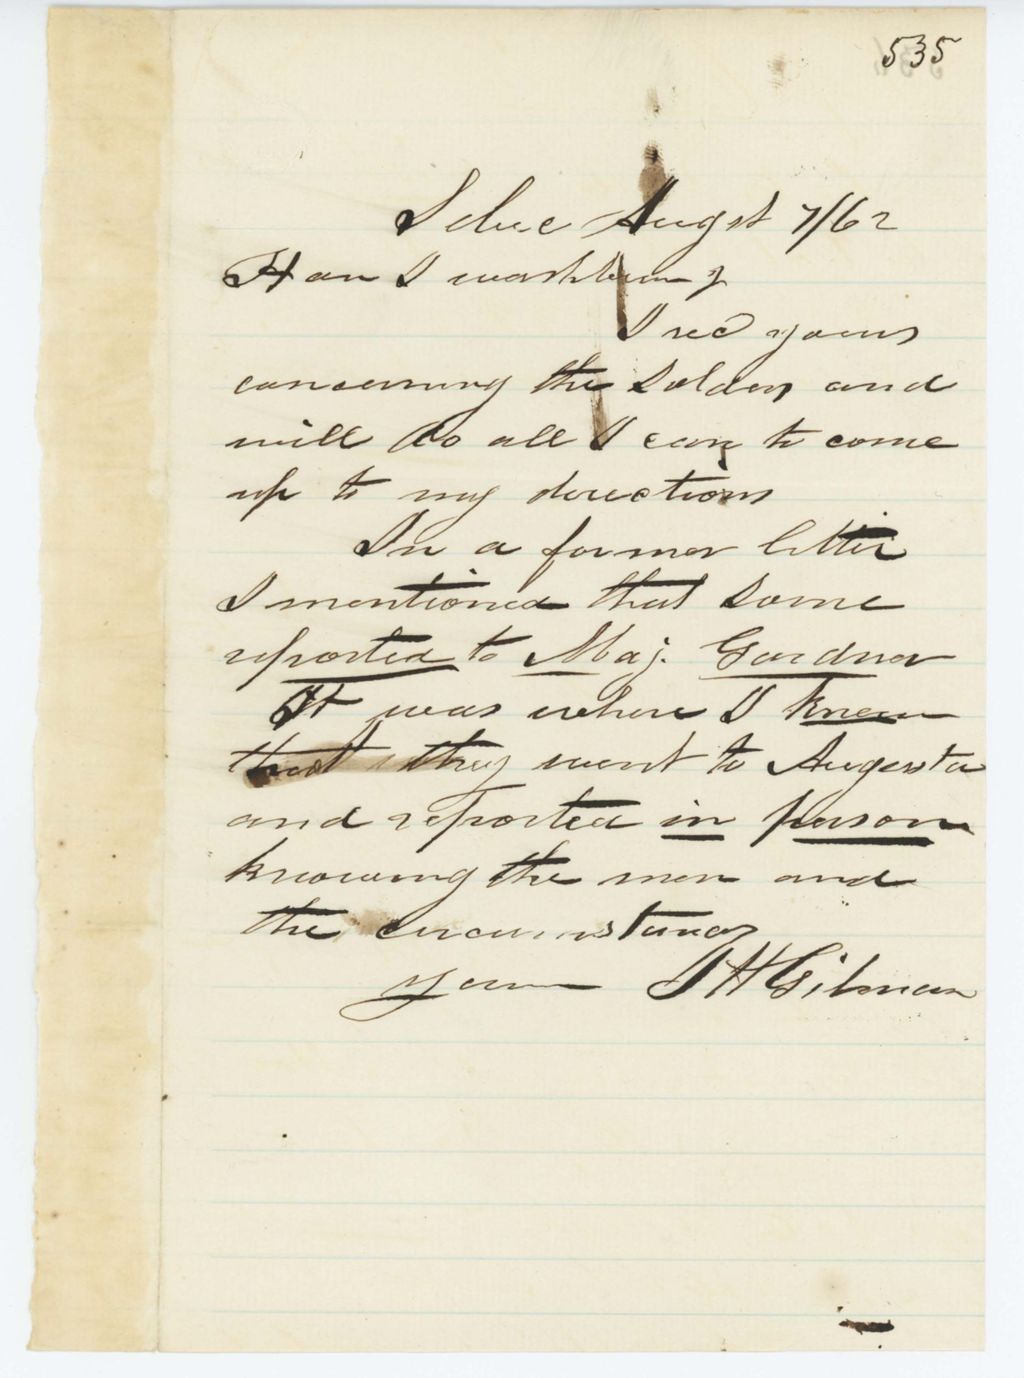 535
Augst 7/62
Hon I washburn Jr
I recd yours
concerning the Soldiers and
will do all I can to come
up to my directions
In a former letter
I mentioned that some
reported to Maj. Gardner
It was where I knew
that they went to Augusta
and reported in person
knowing the men and
the circumstances
yours J H Gilman